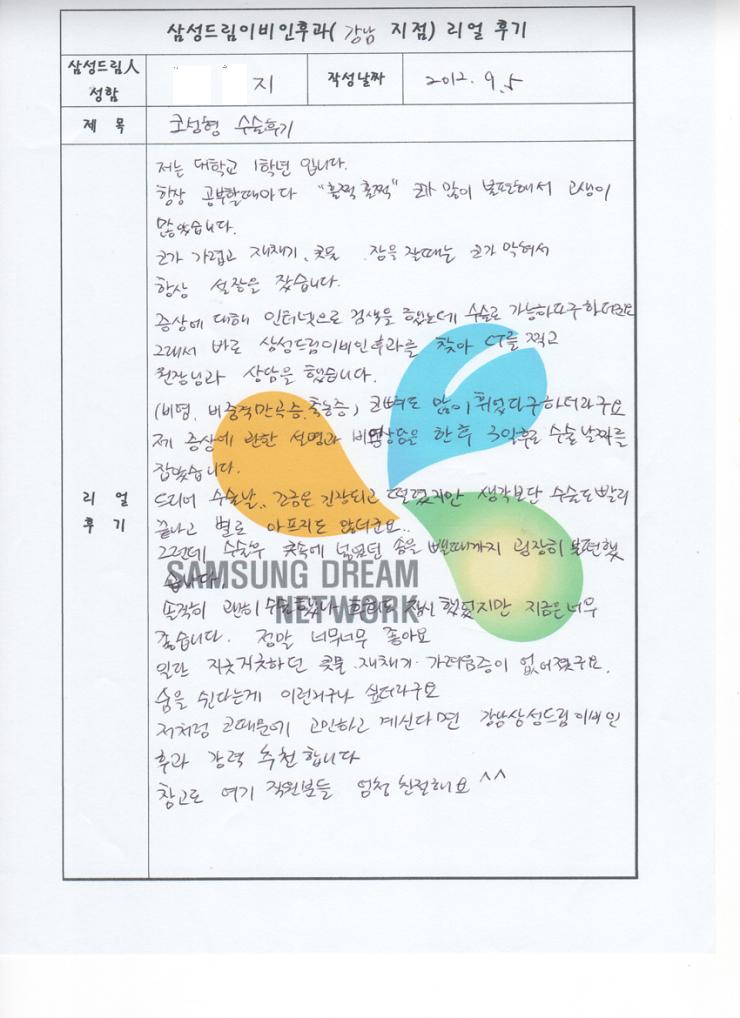 삼성드림이비인후과( 강남 지점) 리얼 후기
삼성드림人
성함
지
작성날짜
2012. 9. 5
제 목
코성형 수술후기
리 얼
후 기
저는 대학교 1학년 입니다.
항상 공부할때마다 "훌쩍훌쩍" 코가 많이 불편해서 고생이
많았습니다.
코가 가렵고 재채기, 콧물, 잠을 잘때는 코가 막혀서
항상 설잠을 잤습니다.
증상에 대해 인터넷으로 검색을 했는데 수술로 가능하다구하더라구요
그래서 바로 삼성드림이비인후과를 찾아 CT를 찍고
원장님과 상담을 했습니다.
(비염, 비중격만곡증,축농증) 코뼈도 많이 휘었다구하더라구요
제 증상에 관한 설명과 비염상담을 한후 3일후로 수술날짜를
잡았습니다.
드디어 수술날.. 조금은 긴장되고 떨렸지만 생각보단 수술도빨리
끝나고 별로 아프지도 않더군요..
그런데 수술후 콧속에 넣었던 솜을 뺄때까지 굉장히 불편했
습니다.
솔직히 괜히 수술했나 후회도 잠시 했었지만 지금은너무
좋습니다. 정말 너무너무 좋아요
일단 지긋지긋하던 콧물·재채기·가려움증이 없어졌구요.
숨을 쉰다는게 이런거구나 싶더라구요
저처럼 코때문에 고민하고 계신다면 강남삼성드림이비인
후과 강력 추천합니다
참고로 여기 직원분들 엄청 친절해요 ^^
SAMSUNG DREAM
NETWORK